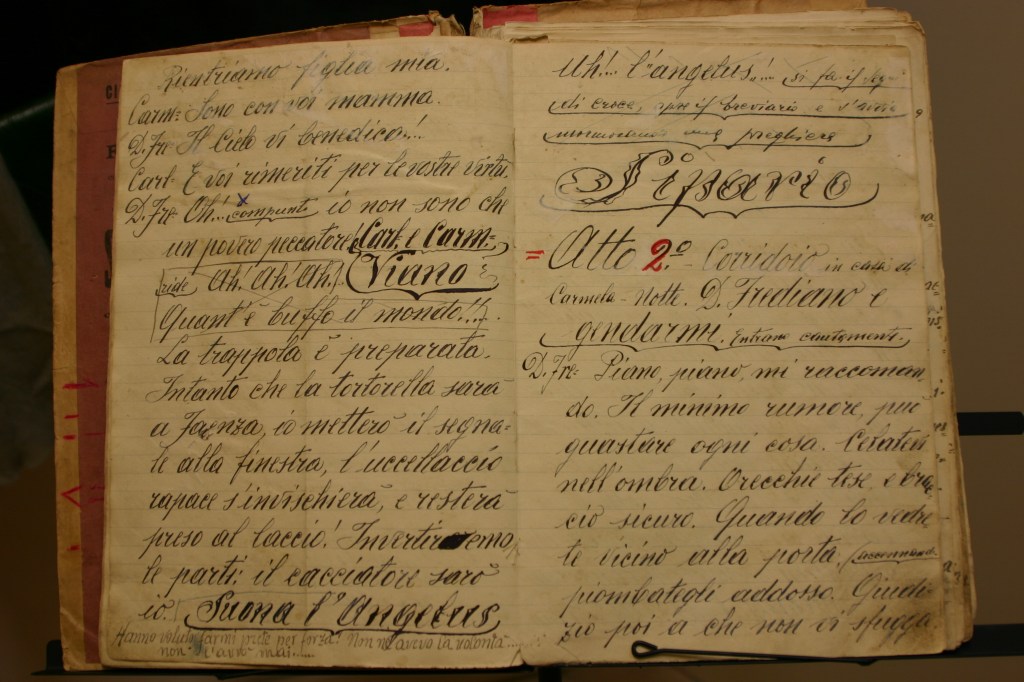 Rientriamo figlia mia.
Carm: Sono con voi mamma.
D. Fre Il Cielo vi benedica!..
Carl: E voi rimeriti per le vostre virtù.
D. Fre: Oh!.. compunto io non sono che
un povero peccatore! Carl. e Carm=
ride Ah! Ah! Ah! Viano
Quant'è buffo il mondo!!..
La trappola è preparata.
Intanto che la tortorella sarà
a Faenza, io metterò il segna-
le alla finestra, l'uccellaccio
rapace s'invischierà, e resterà
preso al laccio! Invertiremo
le parti: il cacciatore sarò
io. Suona l'Angelus
Hanno voluto farmi prete per forza? Non ne avevo la volontà....
non l'avrò mai.....
Uh!.. l'angelus!.. si fa il segno
di croce, apre il breviario e s'avvia
mormorando una preghiera
Sipario
= Atto 2.º - Corridoio in casa di
Carmela - Notte. D. Frediano e
gendarmi. Entrano cautamente.
D. Fre: Piano, piano, mi raccoman
do. Il minimo rumore, può
guastare ogni cosa. Celatevi
nell'ombra. Orecchie tese, e brac
cio sicuro. Quando lo vedre
te vicino alla porta,
piombategli addosso. Giudi-
zio poi a che non vi sfugga.